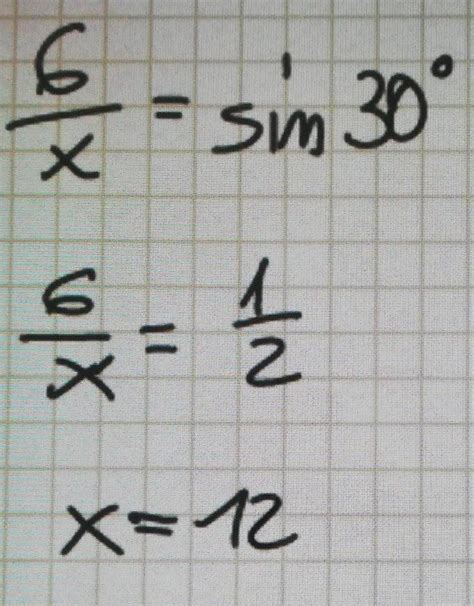 6/x = sin 30°
6/x = 1/2
x = 12